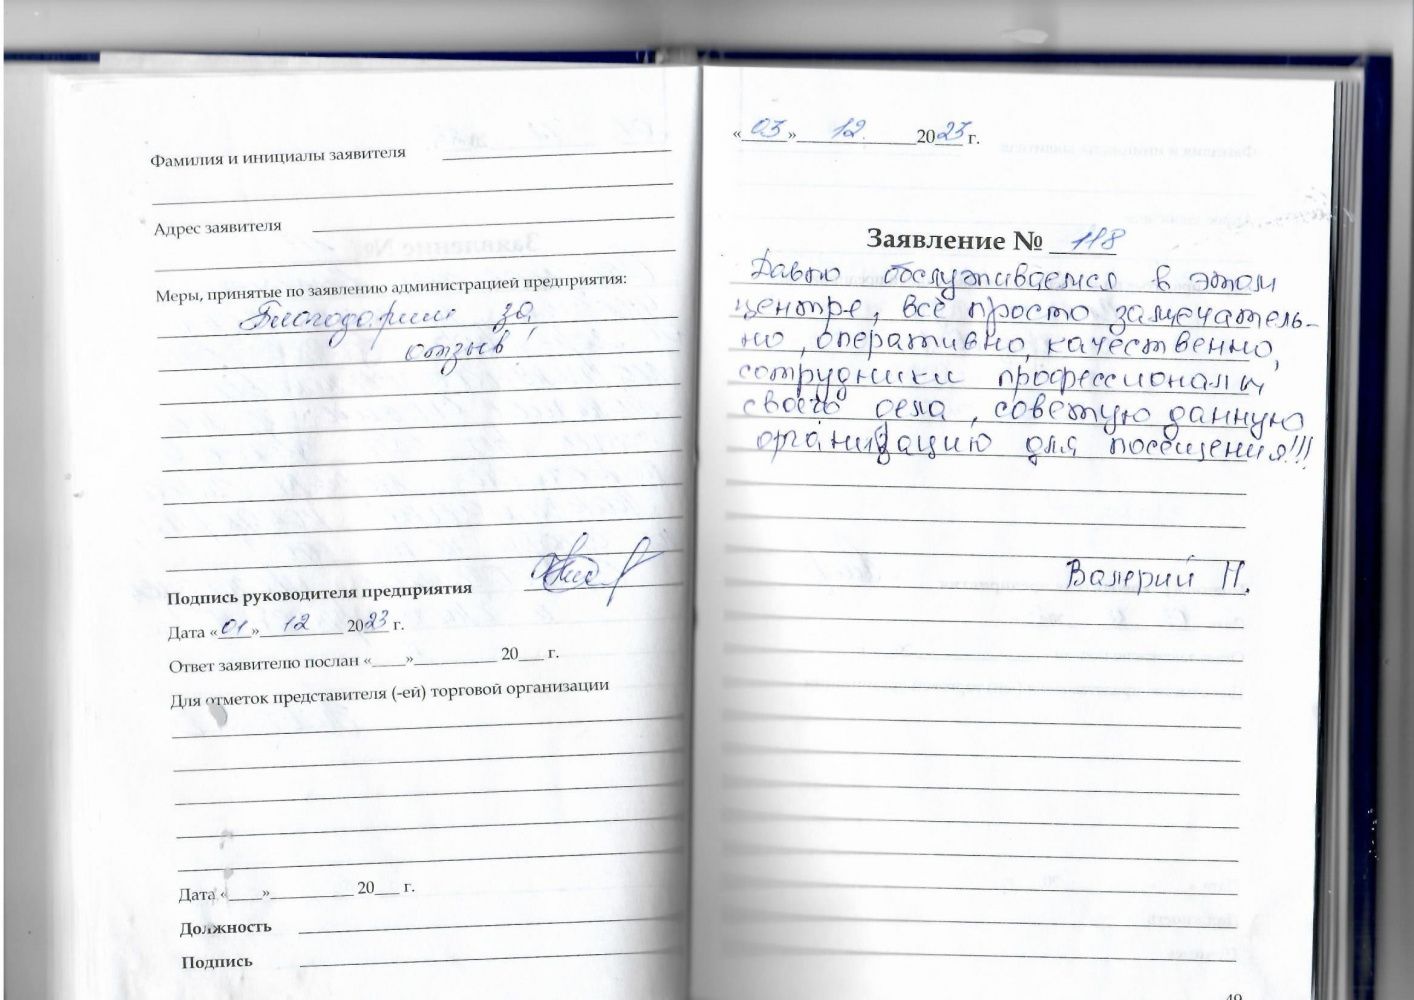 Фамилия и инициалы заявителя
Адрес заявителя
Меры, принятые по заявлению администрацией предприятия:
Благодарим за
отзыв
Подпись руководителя предприятия
Дата «01» 12 2023 г.
Ответ заявителю послан «____»__________ 20___ г.
Для отметок представителя (-ей) торговой организации
Дата «____»__________ 20___ г.
Должность
Подпись
«03» 12. 2023 г.
Заявление № 118
Давно обслуживаемся в этом
центре, всё просто замечатель-
но, оперативно, качественно,
сотрудники профессионалы
своего дела, советую данную
организацию для посещения!!!
Валерий Н.
49